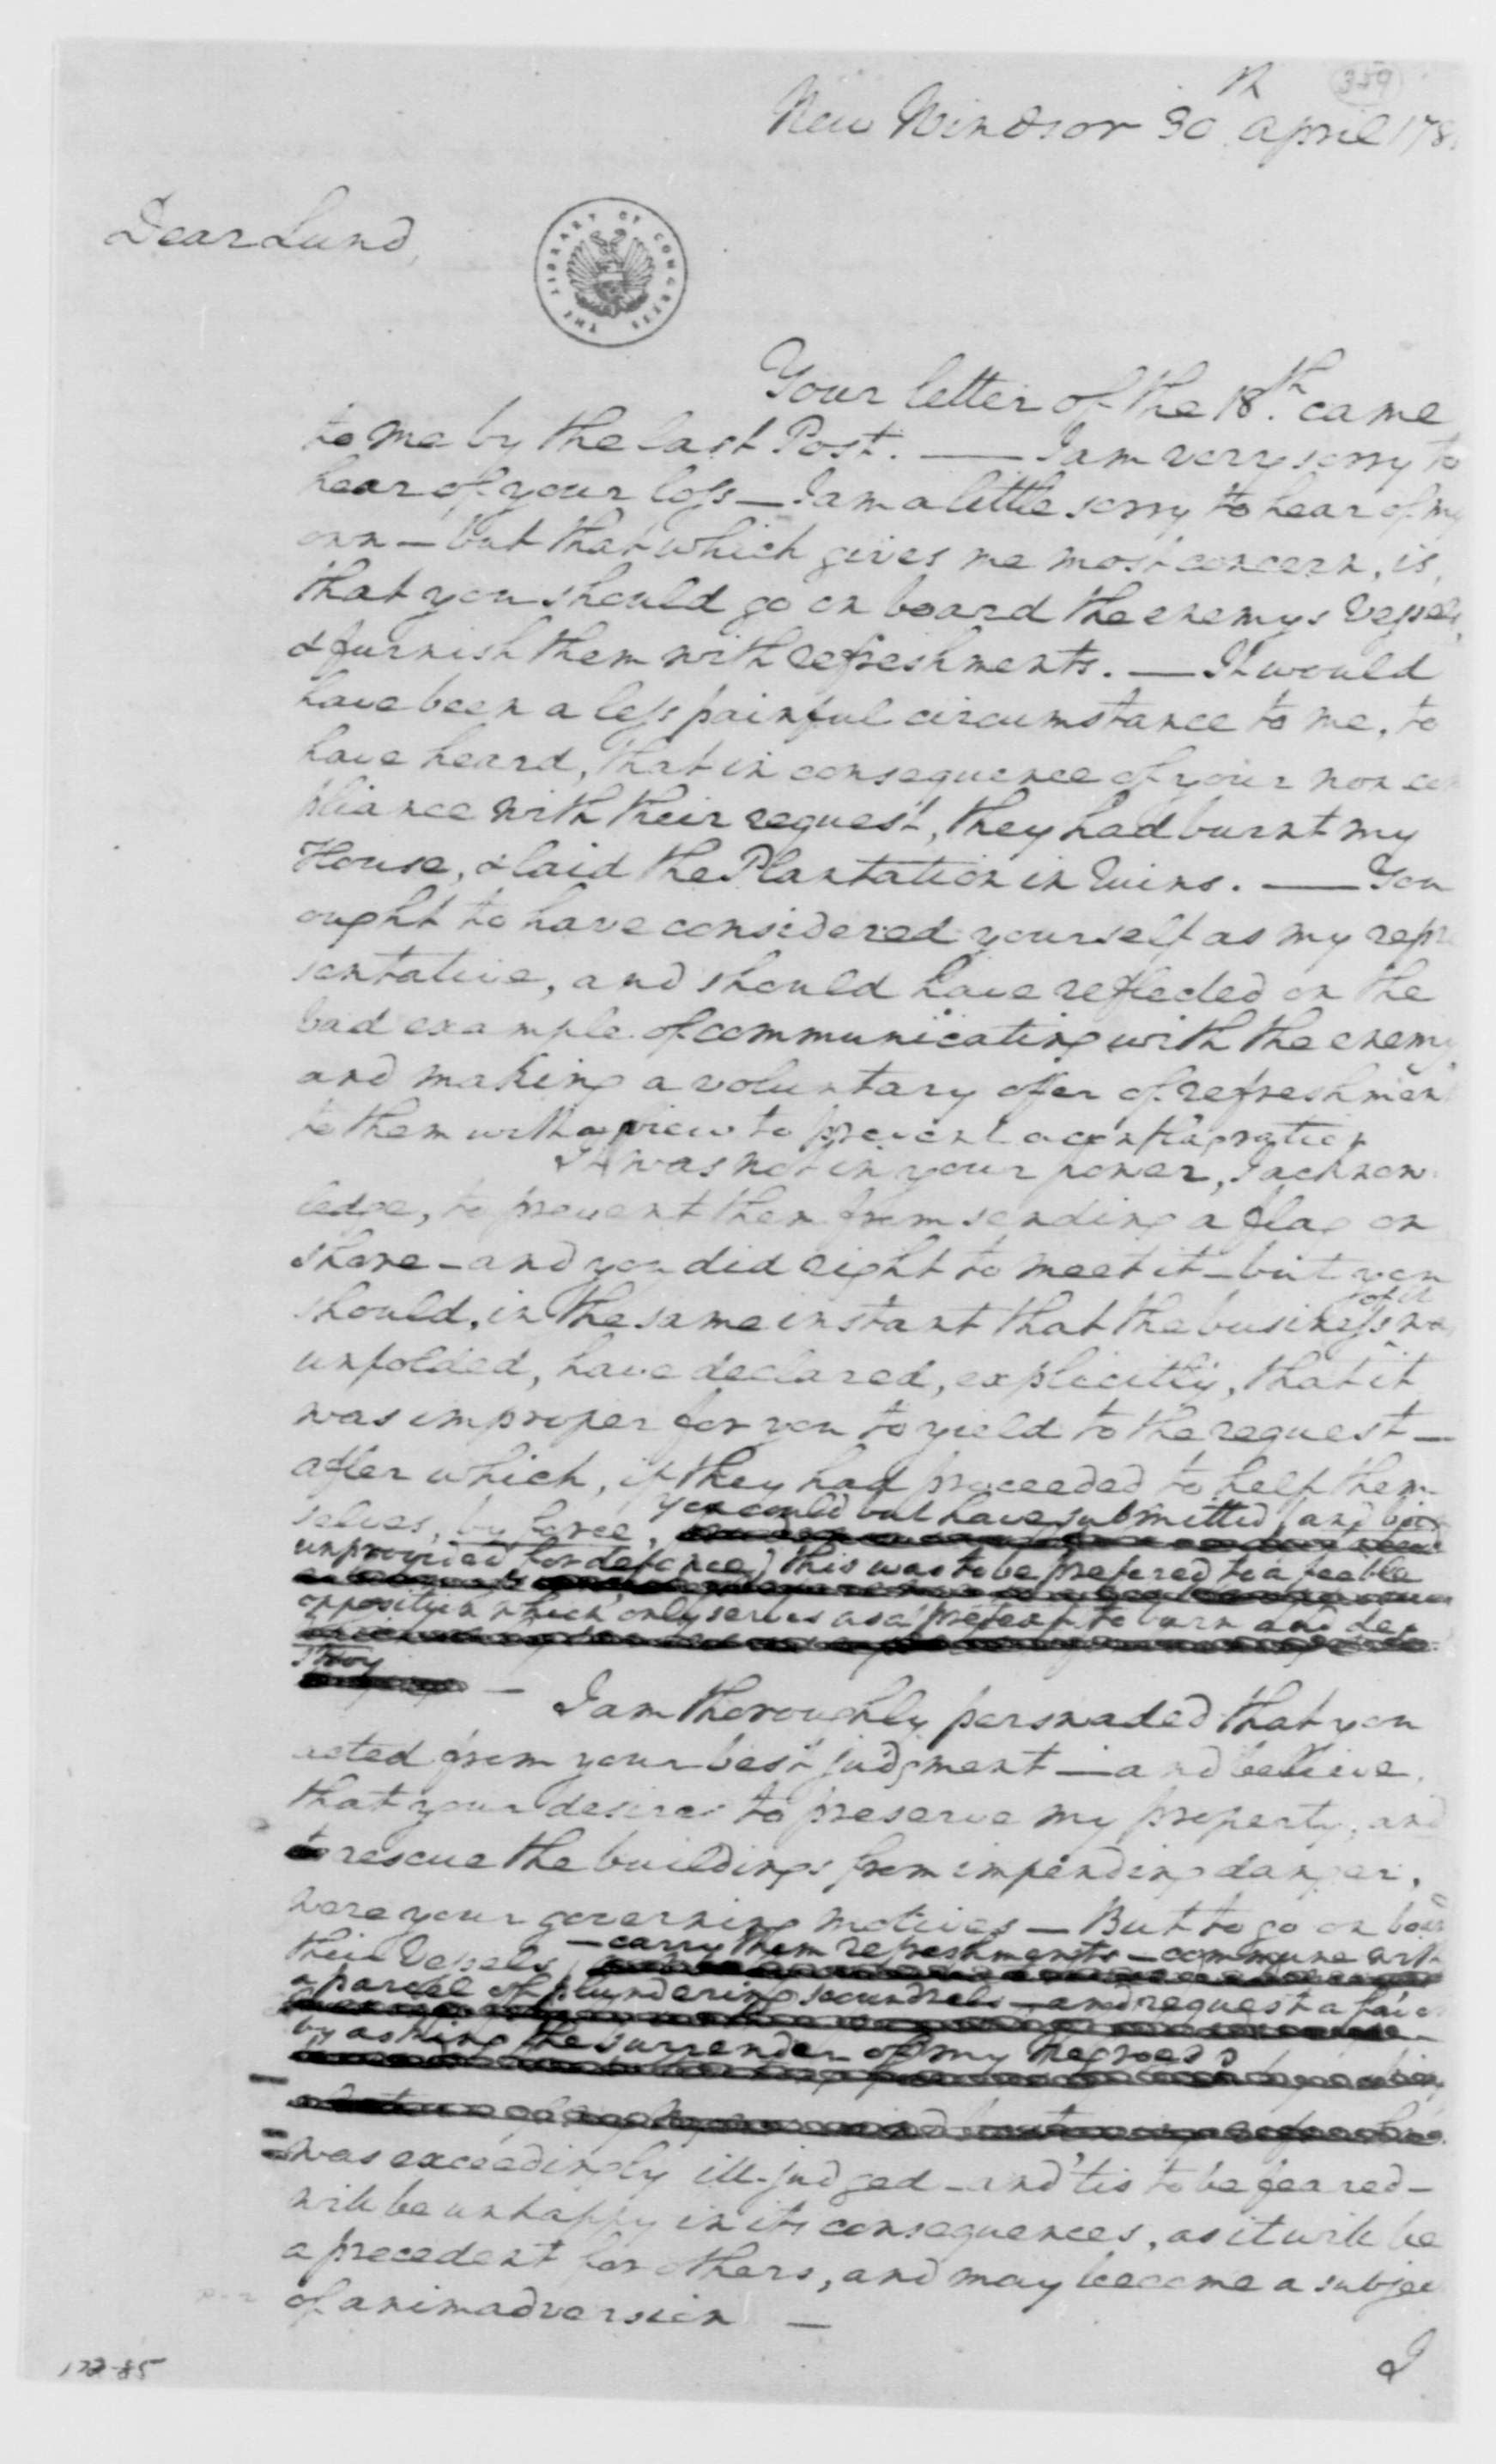 359
New Windsor 30th April 178
Dear Lund,
THE LIBRARY OF CONGRESS
Your letter of the 18th. came
to me by the last Post. — I am very sorry to
hear of your loss — I am a little sorry to hear of my
own — but that which gives me most concern, is,
that you should go on board the enemys Vessels,
& furnish them with refreshments. — It would
have been a less painful circumstance to me, to
have heard, that in consequence of your non com
pliance with their request, they had burnt my
House, & laid the Plantation in Ruins. — You
ought to have considered yourself as my repre
sentative, and should have reflected on the
bad example of communicating with the enemy
and making a voluntary offer of refreshment
to them with a view to prevent a conflagration
It was not in your power, I acknow
ledge, to prevent them from sending a flag on
shore – and you did right to meet it – but you
should, in the same instant that the business of it was
unfolded, have declared, explicitly, that it
was improper for you to yield to the request —
after which, if they had proceeded to help them
selves, by force, you could but have submitted (and being
unprovided for defence) this was to be prefered to a feeble
opposition which only serves as a pretext to burn and des
troy —
I am thoroughly perswaded that you
acted from your best judgment — and believe,
that your desire to preserve my property, and
rescue the buildings from impending danger,
were your governing motives — But to go on board
their Vessels – carry them refreshments – commune with
a parcel of plundering scoundrels – and request a favor
by asking the surrender of my Negroes,
was exceedingly ill-judged – and 'tis to be feared –
will be unhappy in its consequences, as it will be
a precedent for others, and may become a subject
of animadversion —
I
172-85